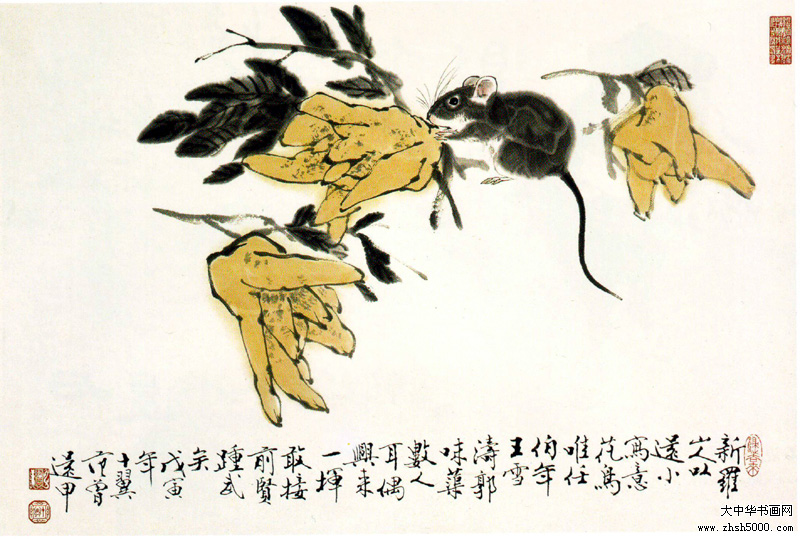 新羅
山人以
還小
寫意
花鳥
唯任
伯年
王雪
濤郭
味蕖
數人
耳偶
興來
一揮
敢接
前賢
踵武
矣
戊寅
年
十翼
范曾
還甲
大中华书画网
www.zhsh5000.com